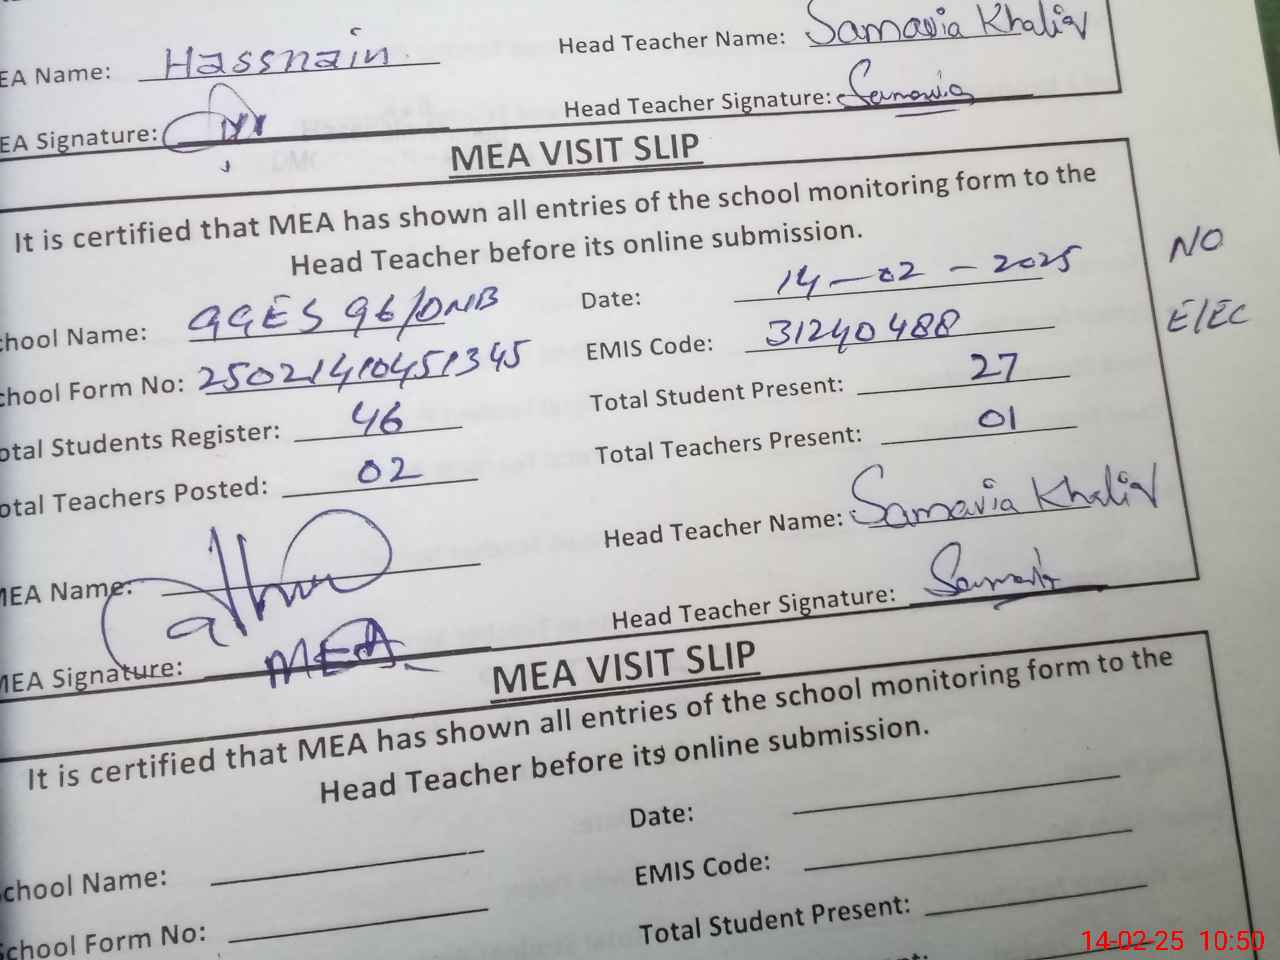 EA Name: Hassnain. Head Teacher Name: Samavia Khaliq
EA Signature: Head Teacher Signature: Samavia
MEA VISIT SLIP
It is certified that MEA has shown all entries of the school monitoring form to the
Head Teacher before its online submission.
NO
chool Name: GGES 96/DNB Date: 14-02-2025
E/EC
chool Form No: 25021410451345 EMIS Code: 31240488
otal Students Register: 46 Total Student Present: 27
otal Teachers Posted: 02 Total Teachers Present: 01
MEA Name: Head Teacher Name: Samavia Khaliq
MEA Signature: MEA Head Teacher Signature: Samavia
MEA VISIT SLIP
It is certified that MEA has shown all entries of the school monitoring form to the
Head Teacher before its online submission.
chool Name: Date:
School Form No: EMIS Code:
Total Student Present:
14-02-25 10:50